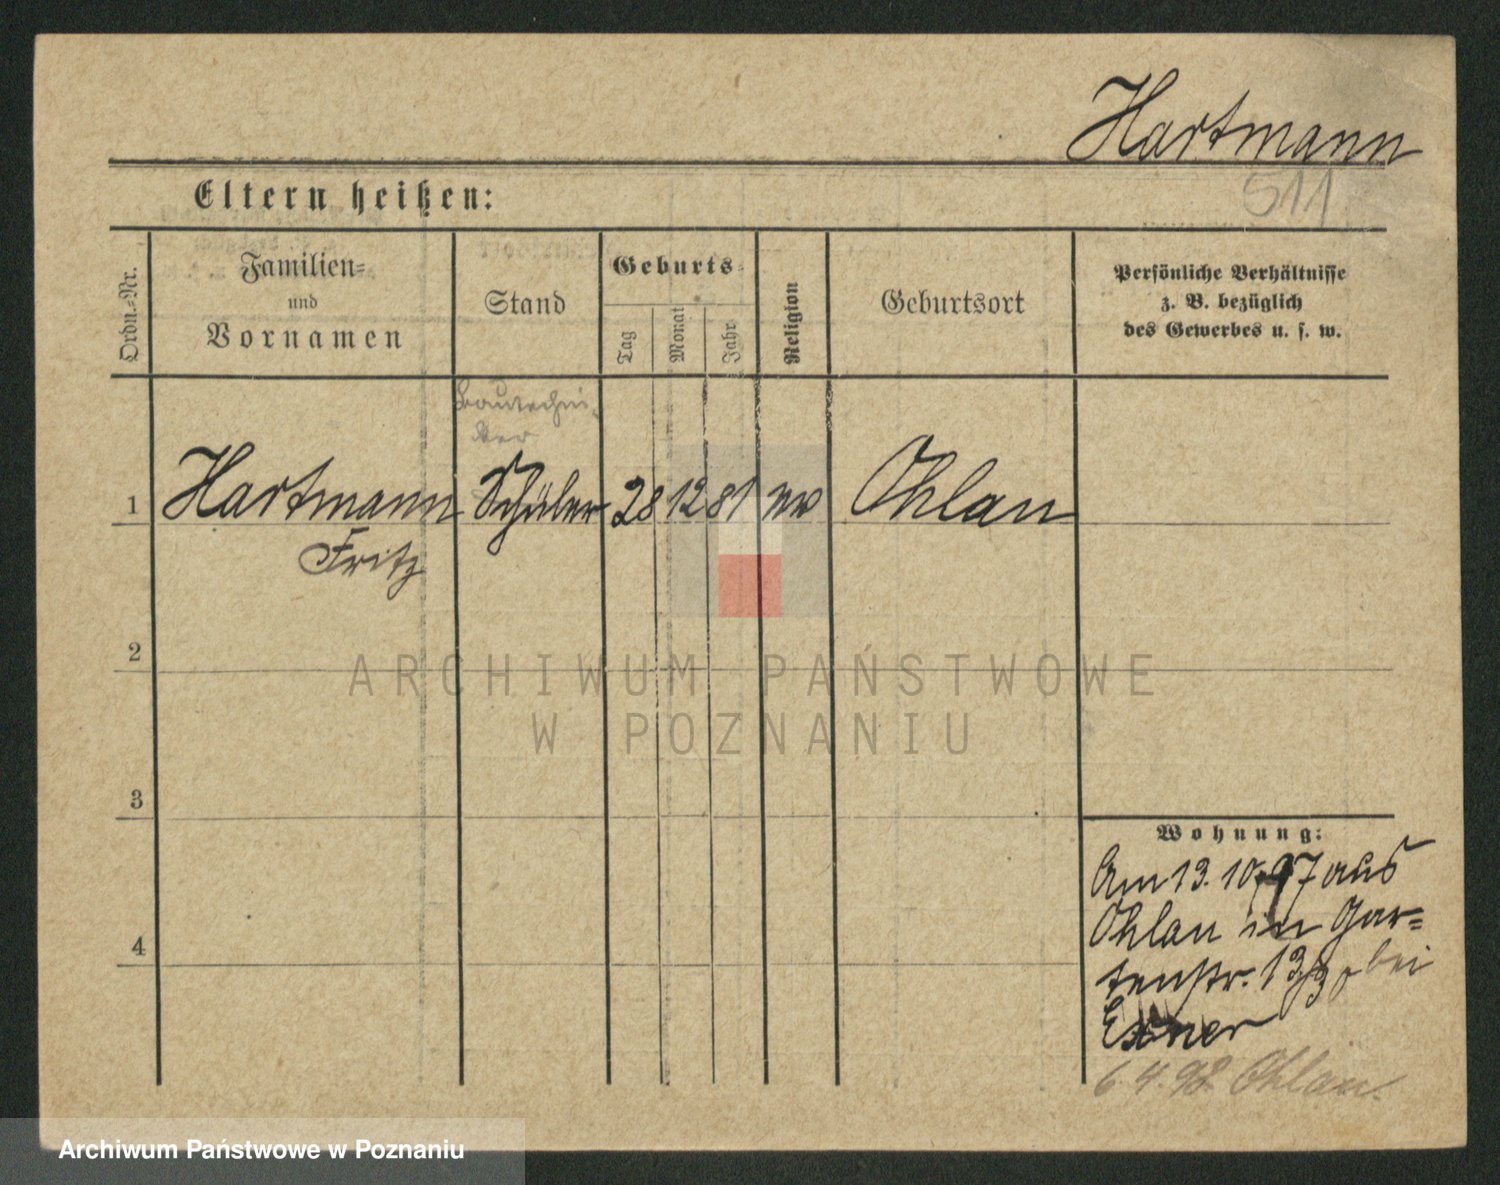 Hartmann
511
Eltern heißen:
Ordn.-Nr.
Familien-
und
Vornamen
Stand
Geburts-
Tag
Monat
Jahr
Religion
Geburtsort
Persönliche Verhältnisse
z. B. bezüglich
des Gewerbes u. s. w.
Bautechni-
ker
1 Hartmann Schüler 28 12 81 ev Ohlau
Fritz
2
3
4
Wohnung:
Am 13. 10. 97 aus
Ohlau in Gar-
tenstr. 13 bei
Exner
6 4. 98. Ohlau.
ARCHIWUM PAŃSTWOWE
W POZNANIU
Archiwum Państwowe w Poznaniu